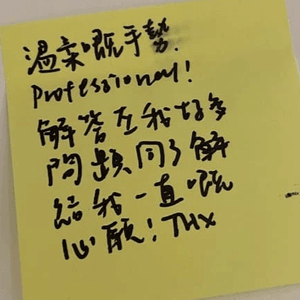 溫柔嘅手勢.
Professional!
解答左我好多
問題同了解
結我一直嘅
心願! THX